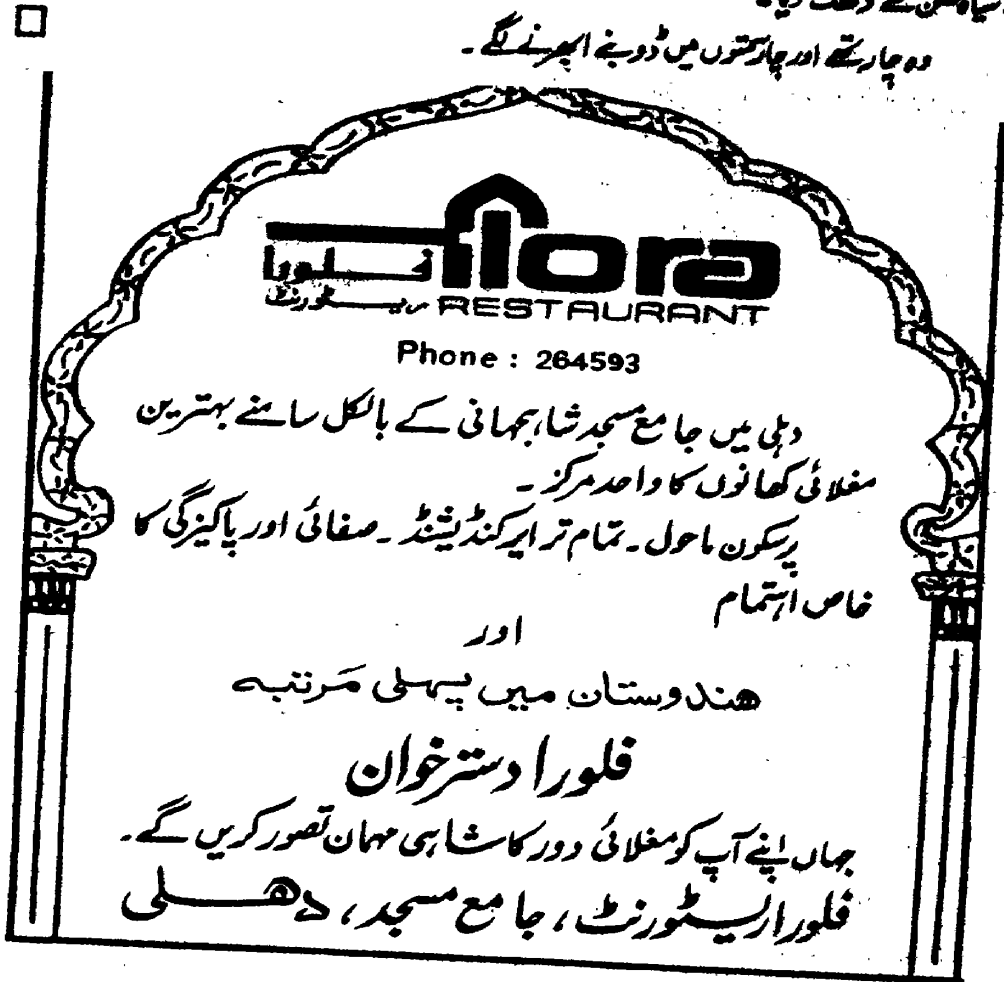 وہ چار تھے اور چار سمتوں میں ڈوبنے ابھرنے لگے۔
flora
فلورا
ریسٹورنٹ RESTAURANT
Phone : 264593
دہلی میں جامع مسجد شاہجہانی کے بالکل سامنے بہترین
مغلائی کھانوں کا واحد مرکز۔
پرسکون ماحول۔ تمام تر ایرکنڈیشنڈ۔ صفائی اور پاکیزگی کا
خاص اہتمام
اور
ھندوستان میں پہلی مَرتبہ
فلورا دسترخوان
جہاں اپنے آپ کو مغلائی دور کا شاہی مہمان تصور کریں گے۔
فلورا ریسٹورنٹ، جامع مسجد، دھلی